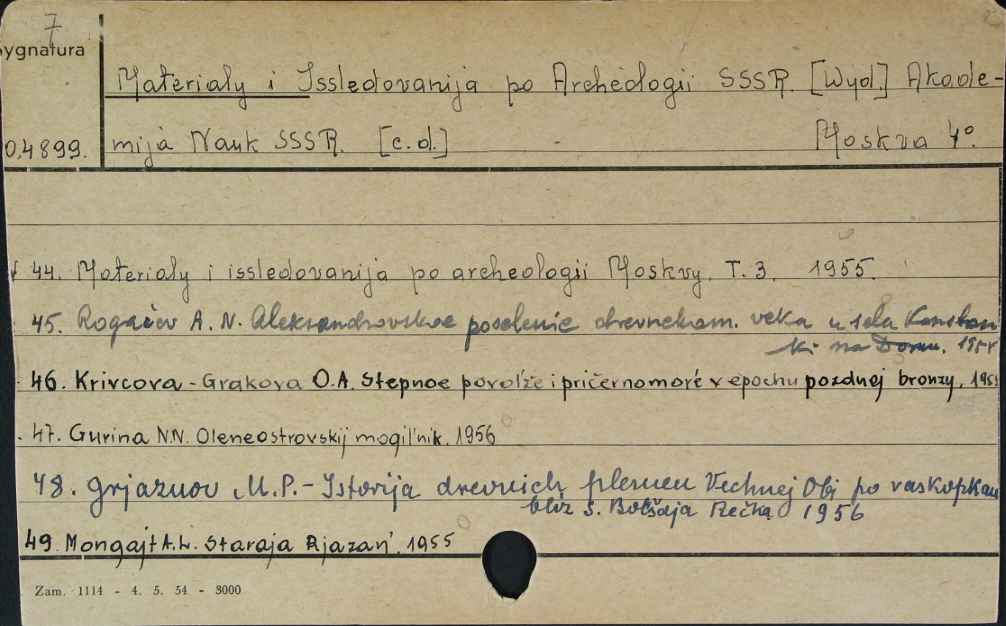 7
ygnatura
Materiały i Issledovanija po Archeologii SSSR. [Wyd.] Akade-
0.4899. mija Nauk SSSR. [c.d.] Moskva 4°.
44. Materiały i issledovanija po archeologii Moskvy. T. 3. 1955.
45. Rogačev A. N. Aleksandrovskoe poselenie drevnekam. veka u sela Kosten
ki na Donu. 1955
46. Krivcova-Grakova O.A. Stepnoe povolž'e i pričernomor'e v epochu pozdnej bronzy. 1955
47. Gurina N.N. Oleneostrovskij mogil'nik. 1956
48. Grjaznov M.P. - Istorija drevnich plemen Verchnej Obi po raskopkam
bliz s. Bol'šaja Rečka 1956
49. Mongajt A.L. Staraja Rjazan'. 1955
Zam. 1114 - 4. 5. 54 - 3000